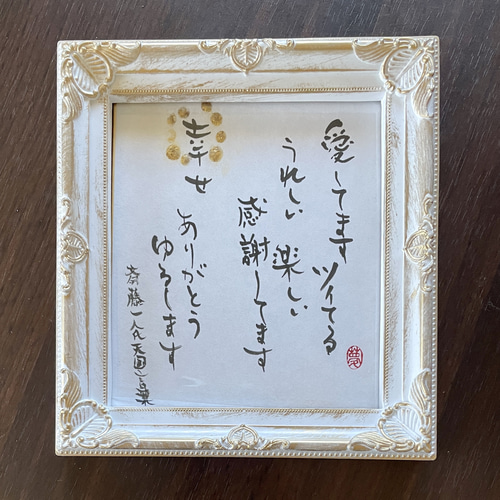 愛してます ツイてる
うれしい 楽しい
感謝してます
幸せ
ありがとう
ゆるします
斎藤一人天国言葉